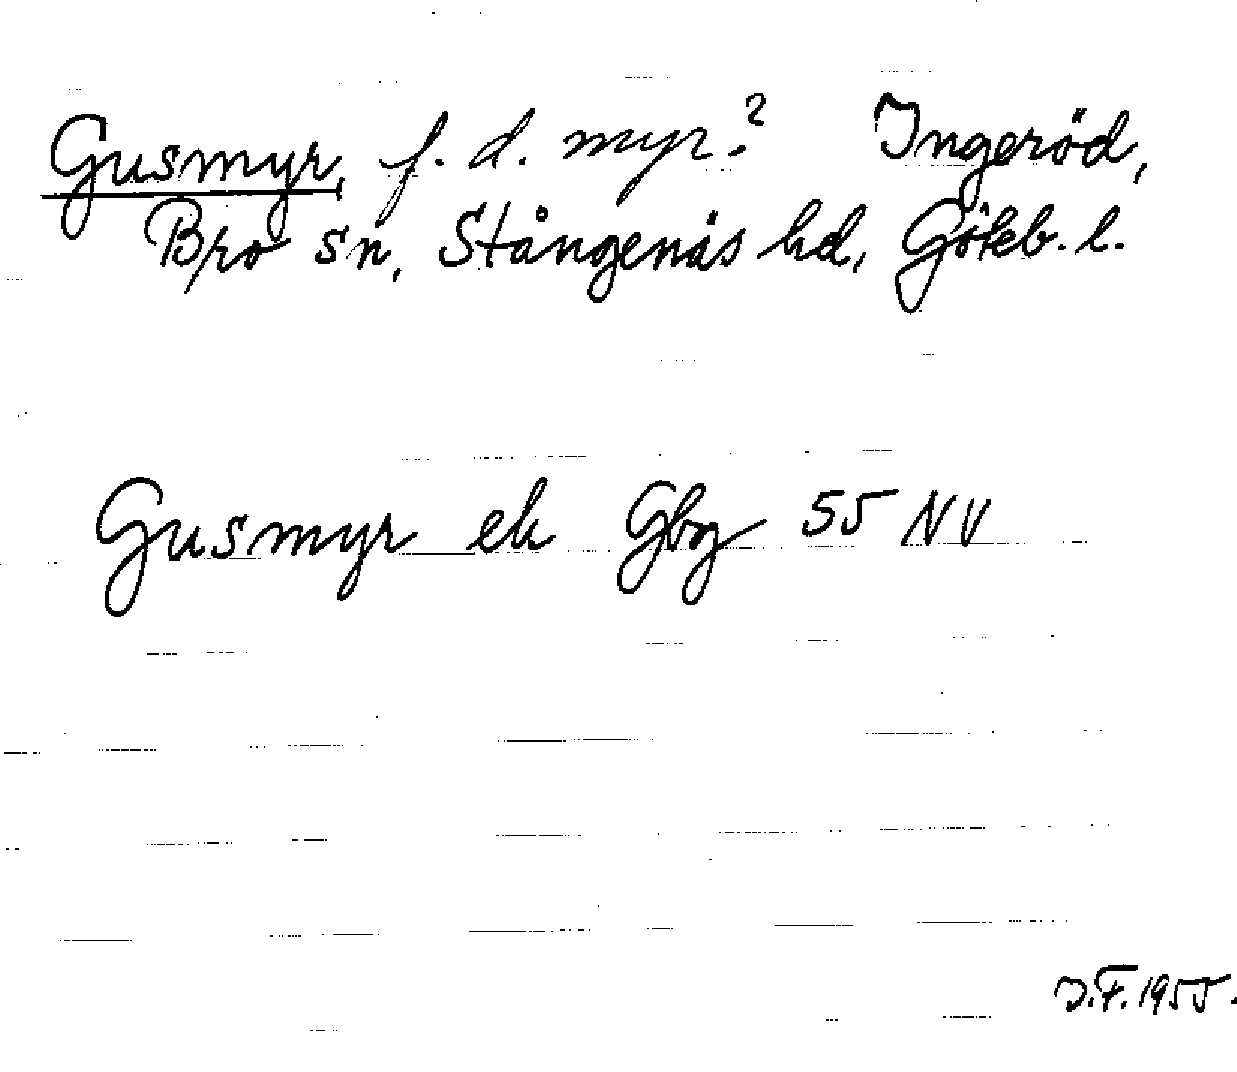 Gusmyr, f. d. myr? Ingeröd,
Bro sn, Stångenäs hd, Göteb. l.
Gusmyr ek Gbg 55 NV
J.F. 1955.